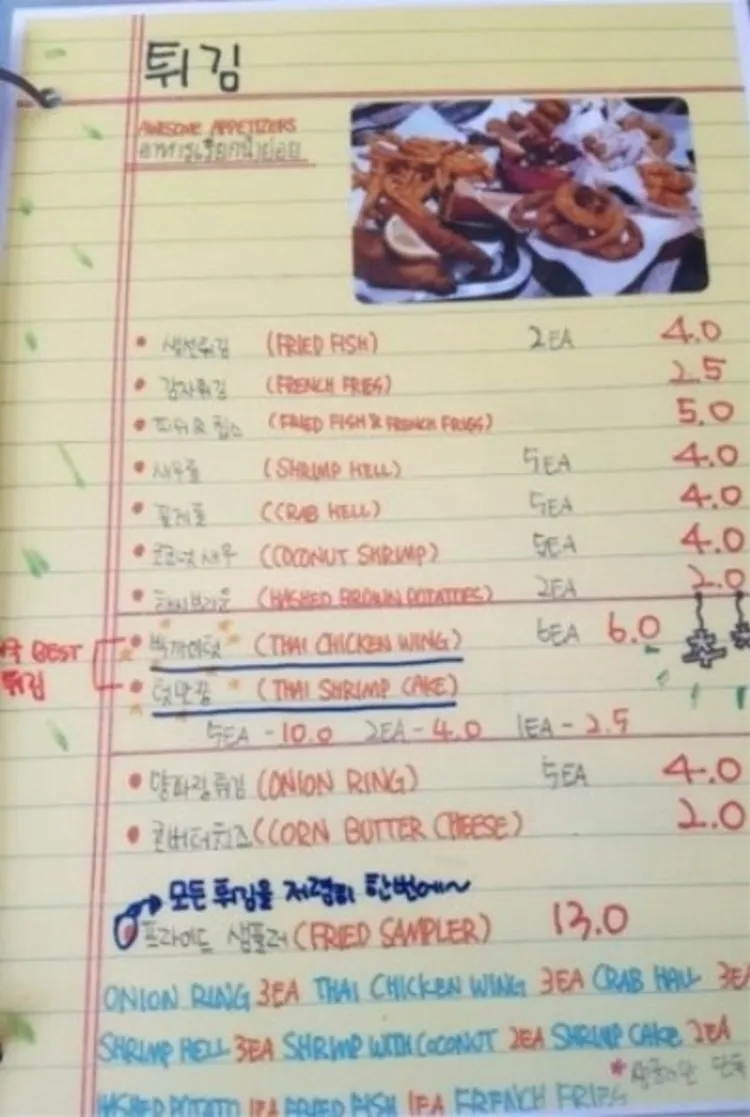 튀김
AWESOME APPETIZERS
อาหารเรียกน้ำย่อย
• 생선튀김 (FRIED FISH) 2EA 4.0
• 감자튀김 (FRENCH FRIES) 2.5
• 피쉬&칩스 (FRIED FISH & FRENCH FRIES) 5.0
• 새우롤 (SHRIMP HELL) 5EA 4.0
• 꽃게롤 (CRAB HELL) 5EA 4.0
• 코코넛새우 (COCONUT SHRIMP) 5EA 4.0
• 해쉬브라운 (HASHED BROWN POTATOES) 2EA 2.0
• (THAI CHICKEN WING) 6EA 6.0
BEST
튀김
• 텃만꿍 (THAI SHRIMP CAKE)
5EA - 10.0 2EA - 4.0 1EA - 2.5
• 양파링튀김 (ONION RING) 5EA 4.0
• 콘버터치즈 (CORN BUTTER CHEESE) 2.0
모든 튀김을 저렴히 한번에~
프라이드 샘플러 (FRIED SAMPLER) 13.0
ONION RING 3EA THAI CHICKEN WING 3EA CRAB HALL 3EA
SHRIMP HELL 3EA SHRIMP WITH COCONUT 2EA SHRIMP CAKE 2EA
HASHED POTATO 1EA FRIED FISH 1EA FRENCH FRIES